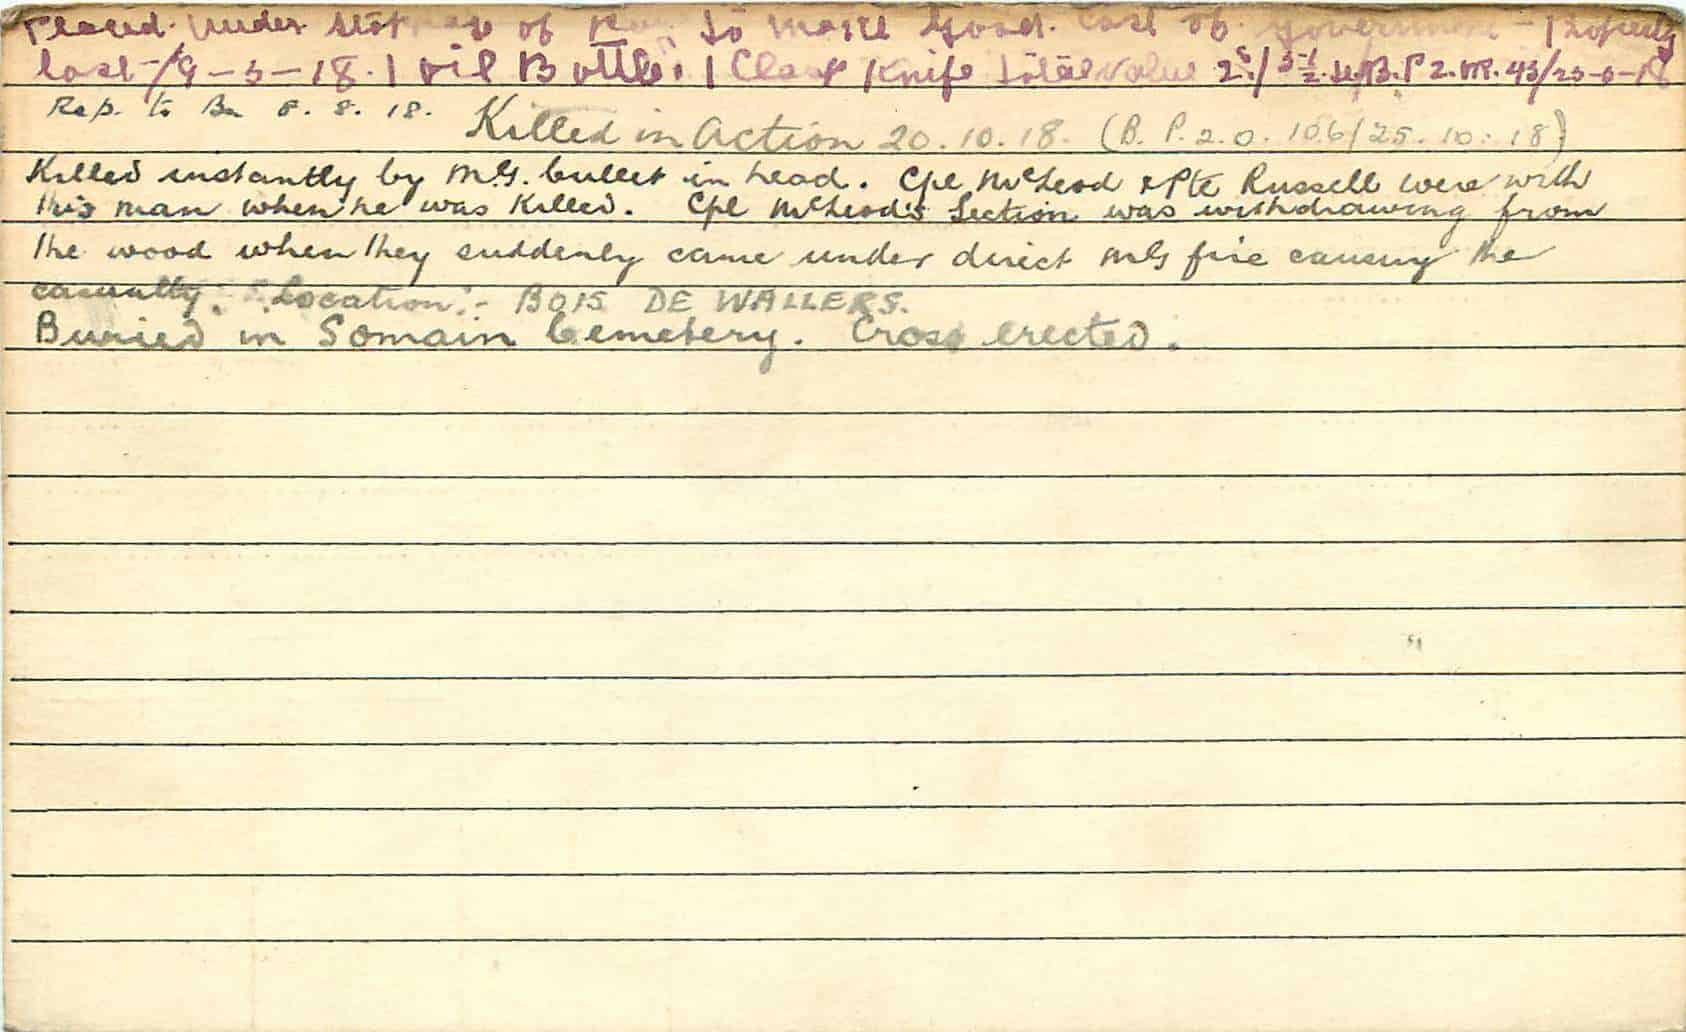 Placed Under Stoppage of Pay to make Good. Cost of Government Property
lost /9-5-18. 1 Oil Bottle. 1 Clasp Knife Total Value 2s/3½ B.P 2.
Rep. to Bn 8. 8. 18. Killed in Action 20.10.18. (B. P.2.O. 106/25.10.18)
Killed instantly by M.G. bullet in head. Cpl McLeod & Pte Russell were with
this man when he was killed. Cpl McLeod's Section was withdrawing from
the wood when they suddenly came under direct MG fire causing the
casualty. "Location":- BOIS DE WALLERS.
Buried in Somain Cemetery. Cross erected.